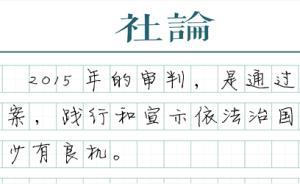 社論
2015年的审判，是通过
案，践行和宣示依法治国
少有良机。